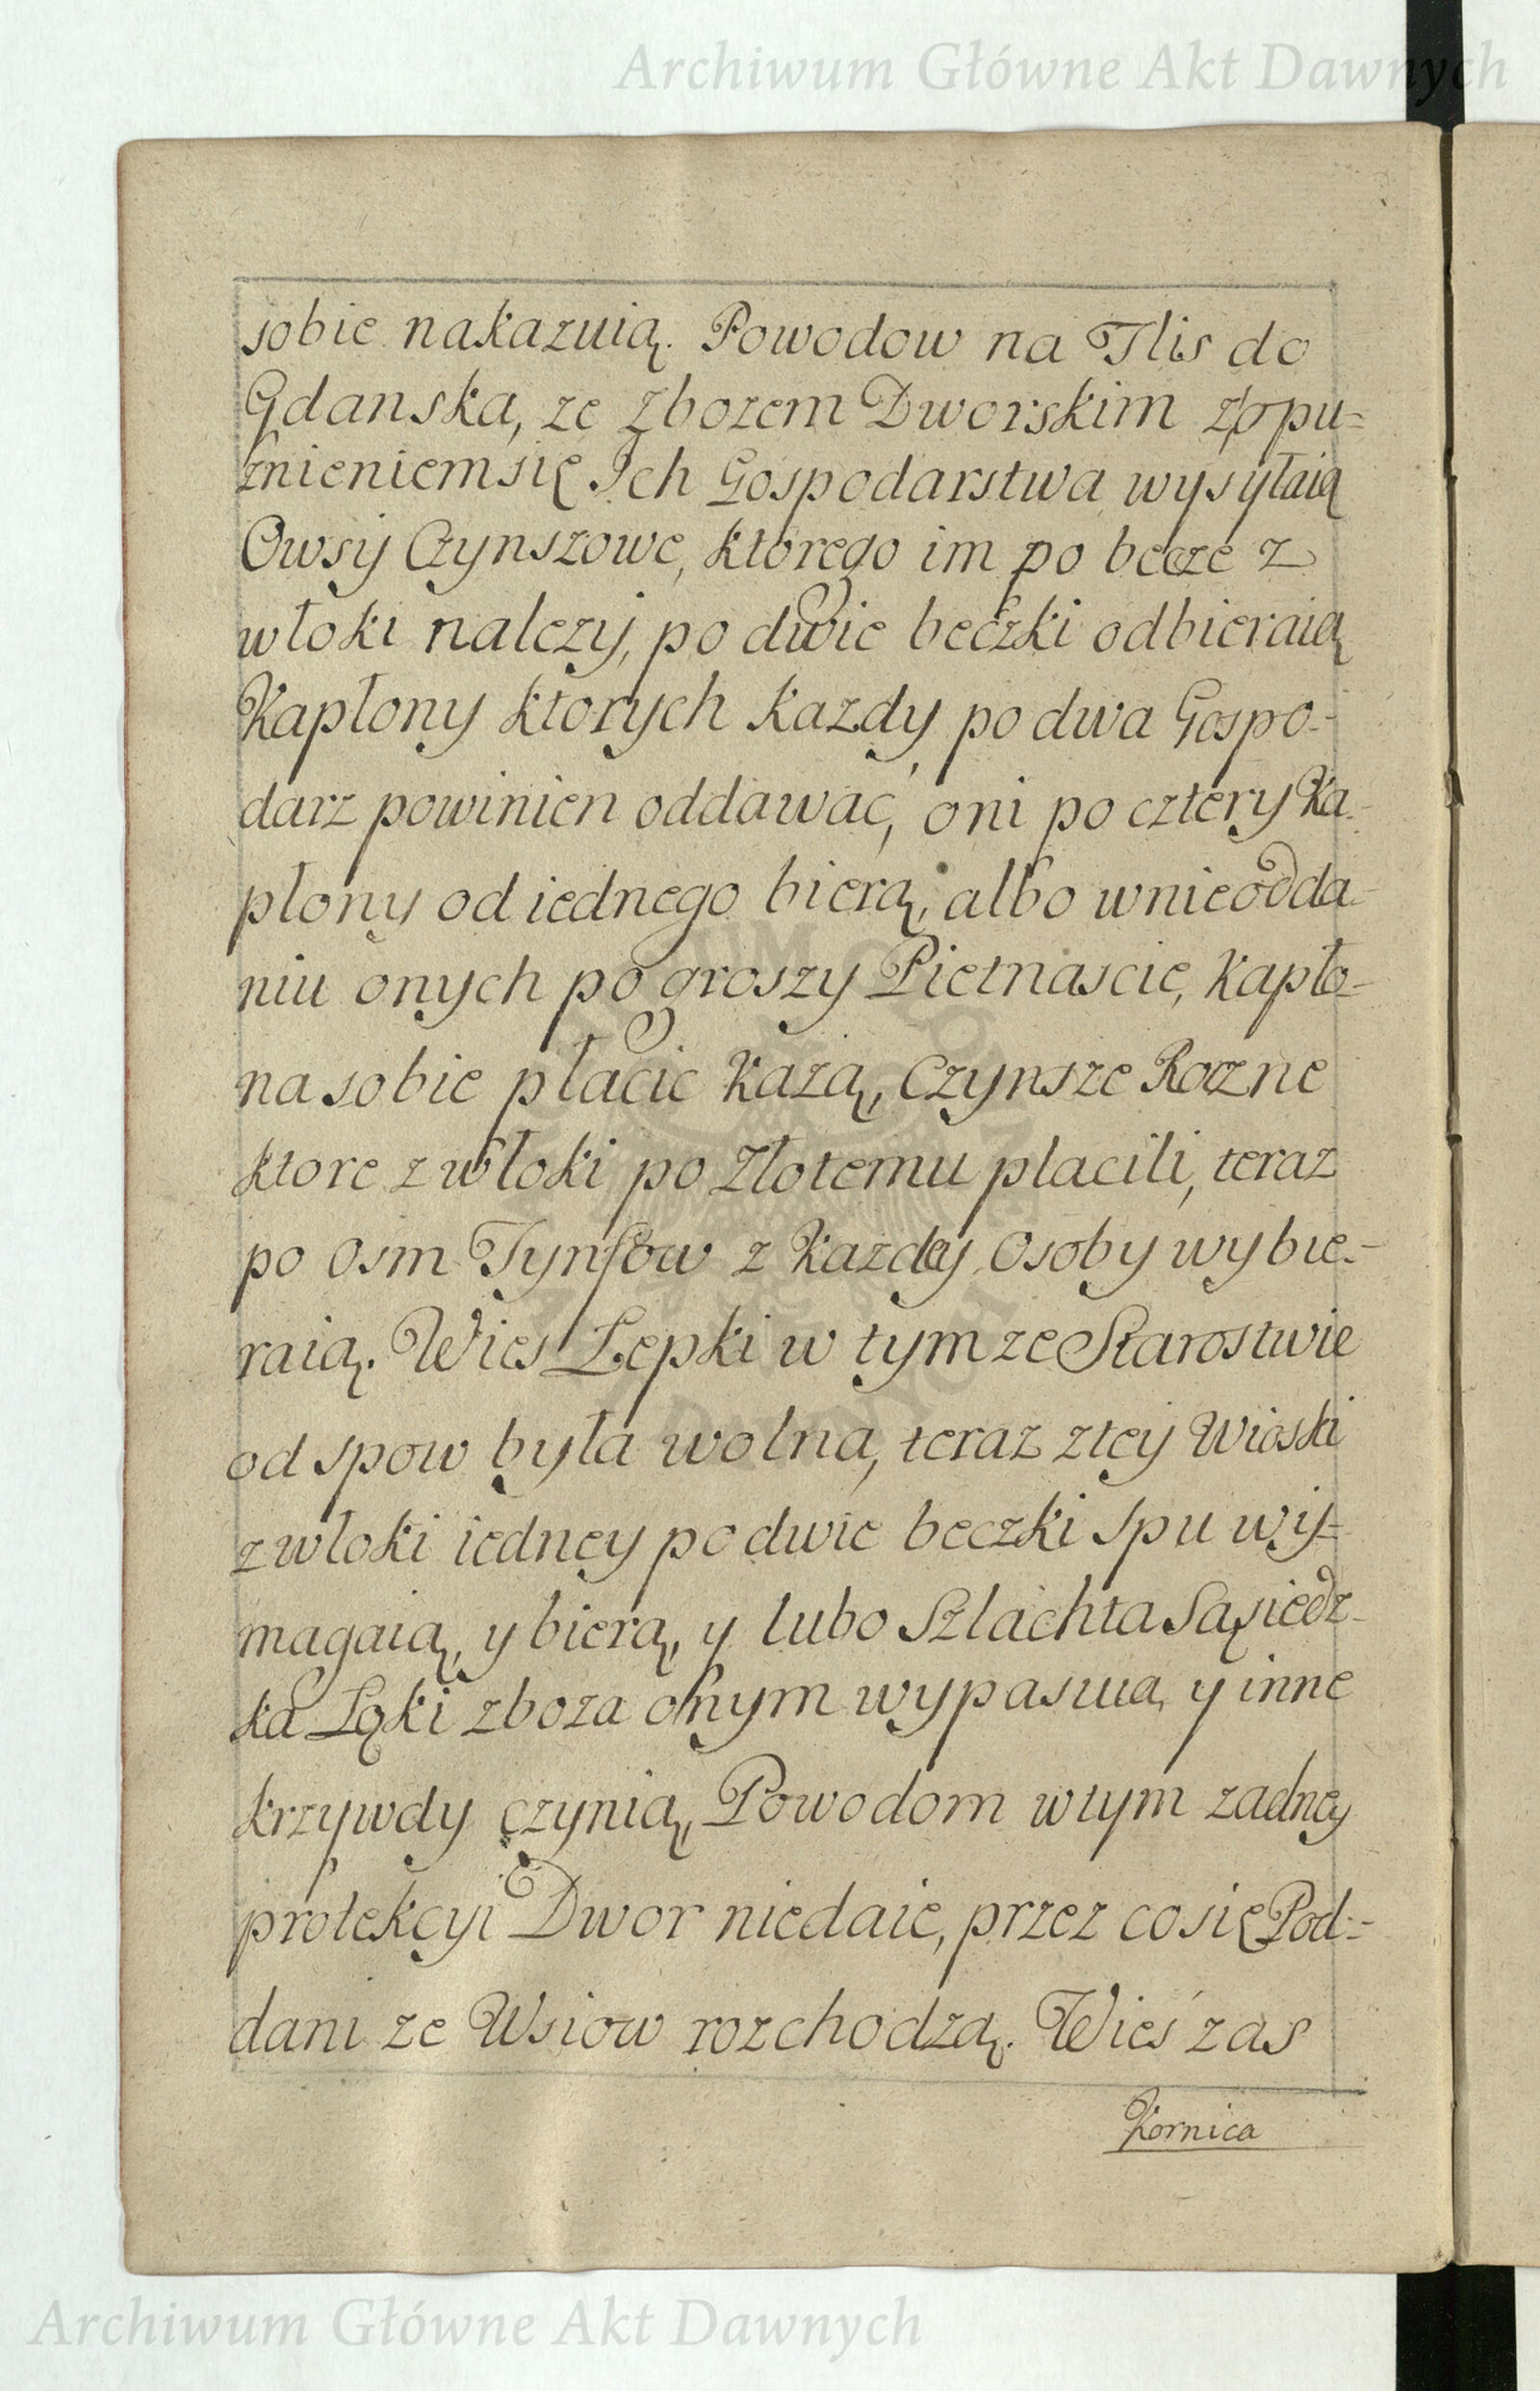 Archiwum Główne Akt Dawnych
sobie nakazuią. Powodow na Flis do
Gdanska, ze zbozem Dworskim z opu-
znieniem się Ich Gospodarstwa wysyłaią
Owsy Czynszowe, ktorego im po becze z
włoki nalezy, po dwie beczki odbieraią
Kapłony ktorych kazdy po dwa Gospo-
darz powinien oddawać, oni po cztery Ka-
płony od iednego bierą, albo wnieodda-
niu onych po groszy Pietnascie, kapło-
na sobie płacic każą, Czynsze Roczne
ktore z włoki po Złotemu placili, teraz
po osm Tynfow z Kazdey Osoby wybie-
raią. Wies Łepki w tymze Starostwie
od spow była wolna, teraz z tey Wioski
z włoki iedney po dwie beczki spu wy-
magaią, y bierą, y lubo Szlachta Sąsiedz-
ka Łąki zboza onym wypasuia, y inne
krzywdy czynią, Powodom w tym zadney
protekcyi Dwor niedaie, przez co się Pod-
dani ze Wsiow rozchodzą. Wieś zas
Kornica
Archiwum Główne Akt Dawnych